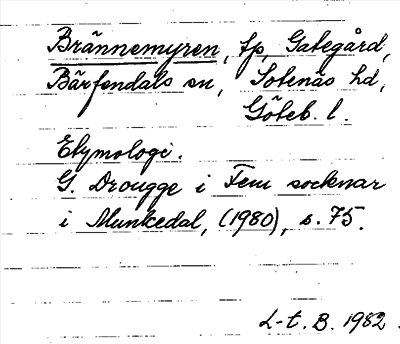 Brännemyren, tp, Gategård,
Bärfendals sn, Sotenäs hd,
Göteb. l.
Etymologi.
G. Drougge i Fem socknar
i Munkedal, (1980), s. 75.
L-t. B. 1982.